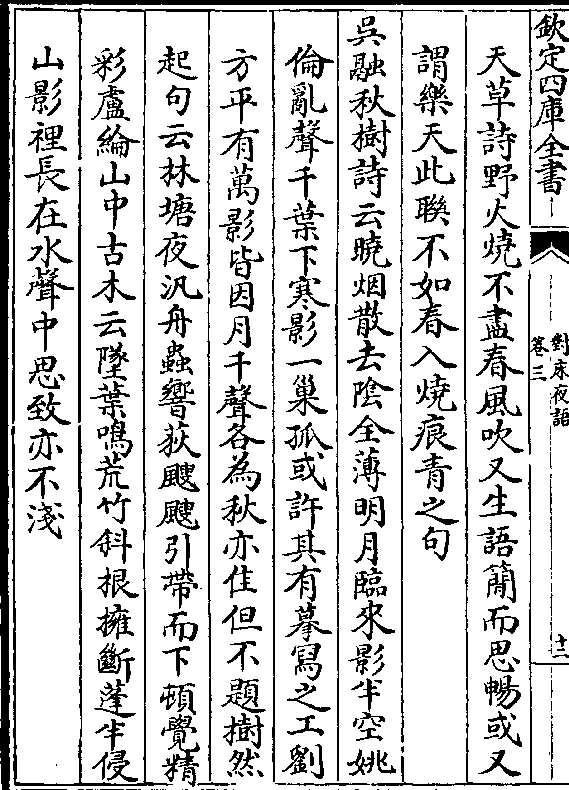 欽定四庫全書
對床夜語
卷三
十二
天草詩野火燒不盡春風吹又生語簡而思暢或又
謂樂天此聯不如春入燒痕青之句
吳融秋樹詩云曉烟散去陰全薄明月臨來影半空姚
倫亂聲千葉下寒影一巢孤或許其有摹寫之工劉
方平有萬影皆因月千聲各為秋亦佳但不題樹然
起句云林塘夜汎舟蟲響荻颼颼引帶而下頓覺精
彩盧綸山中古木云墜葉鳴荒竹斜根擁斷蓬半侵
山影裡長在水聲中思致亦不淺